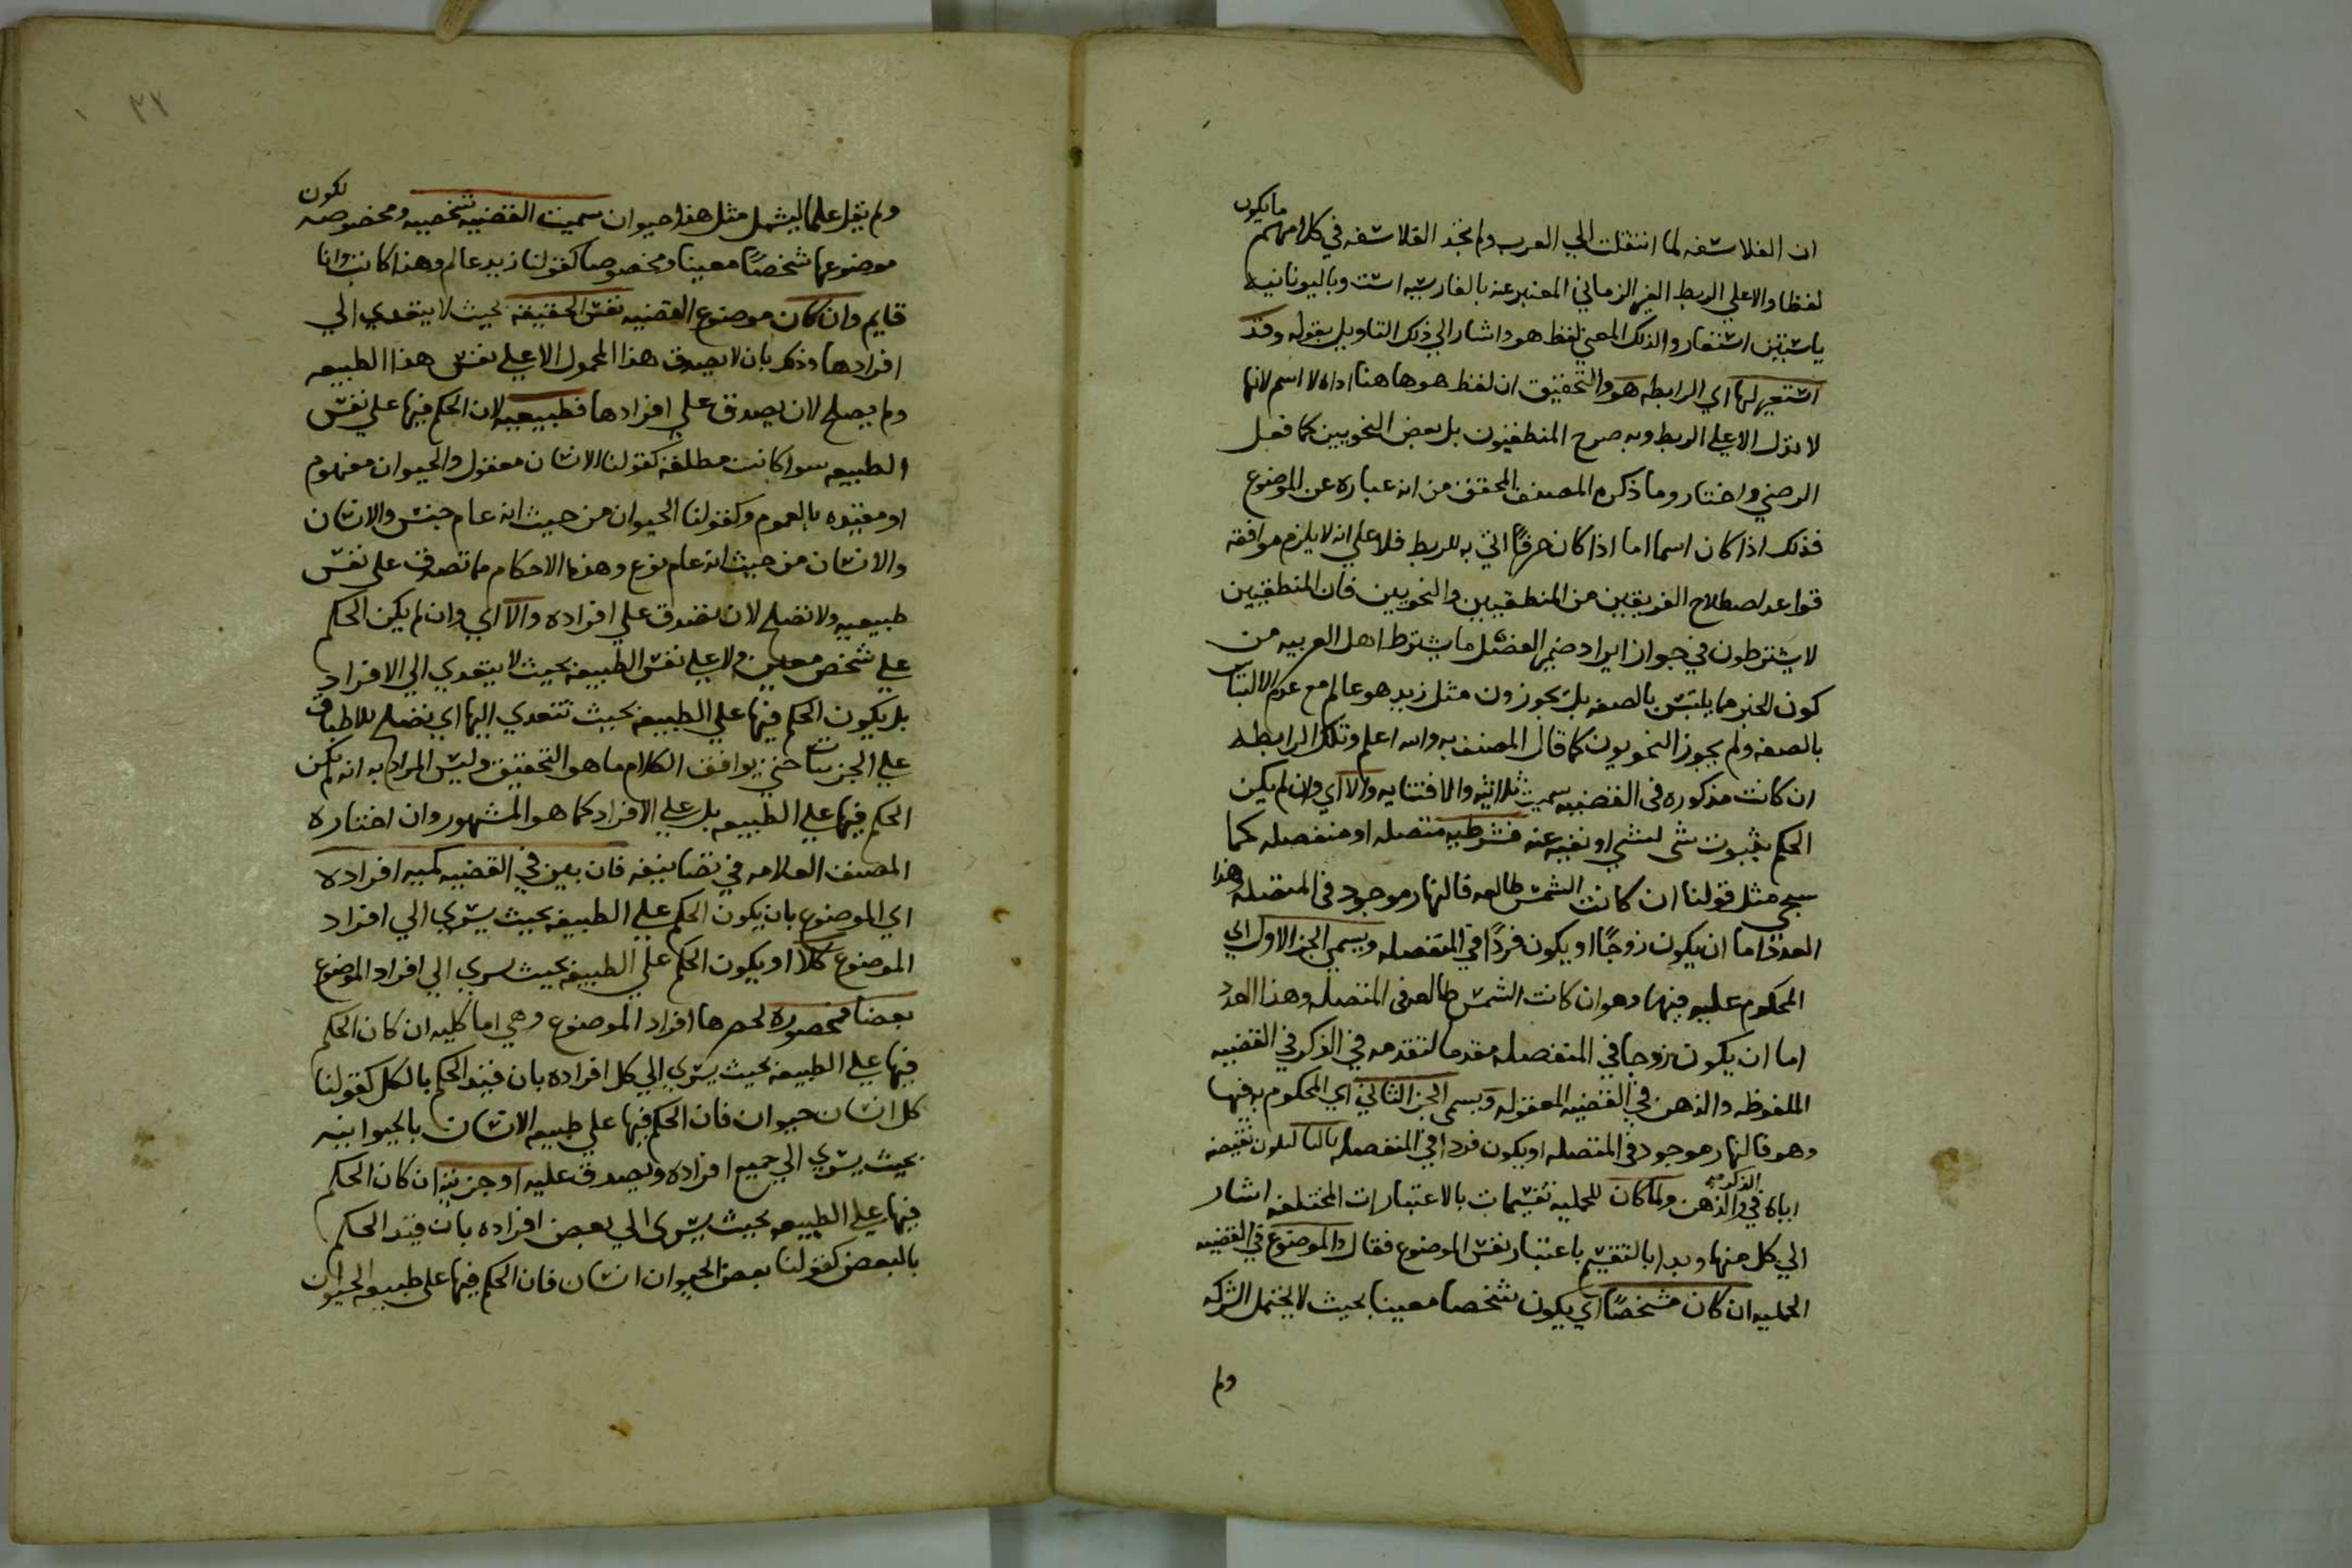 ان الفلاسفه لما انتقلت الي العرب ولم تجد الفلاسفه في كلامهم ما يكون
لفظا دالا علي الربط الغير الزماني المعبر عنه بالفارسيه است وباليونانيه
باستين استعاروا لذلك المعني لفظ هو واشار الي ذلك التاويل بقوله وقد
استعير لها اي الرابطه هو والتحقيق ان لفظ هو هاهنا اداه لا اسم لانها
لا تدل الا علي الربط وبه صرح المنطقيون بل بعض النحويين كما فعل
الرضي واختار وما ذكره المصنف المحقق من انه عباره عن الموضوع
فذلك اذا كان اسما اما اذا كان حرفًا اتي به للربط فلا علي انه لا يلزم موافقه
قواعد لصطلاح الفريقين من المنطقيين والنحويين فان المنطقيين
لا يشترطون في جواز ايراد ضمير الفصل ما يشترط اهل العربيه من
كون الخبر مما يلتبس بالصفه بل يجوزون مثل زيد هو عالم مع عدم الالتباس
بالصفه ولم يجوز النحويون كما قال المصنف به والله اعلم وتلك الرابطه
ان كانت مذكوره في القضيه سميت ثلاثيه والا فثنايه والا اي وان لم يكن
الحكم بثبوت شي لشي او نفيه عنه فشرطيه متصله او منفصله كما
سيجي مثل قولنا ان كانت الشمس طالعه فالنهار موجود في المتصله وهذا
العدد اما ان يكون زوجًا او يكون فردًا في المنفصله ويسمي الجز الاول اي
المحكوم عليه فيها وهو ان كانت الشمس طالعه في المتصله وهذا العدد
اما ان يكون زوجا في المنفصله مقدما لتقدمه في الذكر في القضيه
الملفوظه والذهن في القضيه المعقوله ويسمي الجز الثاني اي المحكوم به فيها
وهو فالنهار موجود في المتصله او يكون فردا في المنفصله تاليا لكون تبعيته
اياه في الذكر والذهن ولما كان للحمليه تقسيمات بالاعتبارات المختلفه اشار
الي كل منها وبدا بالتقسيم باعتبار نفس الموضوع فقال والموضوع في القضيه
الحمليه ان كان مشخصًا اي يكون شخصا معينا بحيث لا يحتمل الشركه
ولم
٣٢
ولم يقل علما ليشمل مثل هذا حيوان سميت القضيه شخصيه ومخصوصه لكون
موضوعها شخصًا معينا ومخصوصا كقولنا زيد عالم وهذا كاتب وانا
قايم وان كان موضوع القضيه نفس الحقيقه بحيث لا يتعدي الي
افرادها وذلك بان لا يصدق هذا المحمول الا علي نفس هذا الطبيعه
ولم يصلح لان يصدق علي افرادها فطبيعيه لان الحكم فيها علي نفس
الطبيعه سوا كانت مطلقه كقولنا الانسان معقول والحيوان مفهوم
او مقيده بالعموم وكقولنا الحيوان من حيث انه عام جنس والانسان
والانسان من حيث انه عام نوع وهذه الاحكام مما تصدق علي نفس
طبيعيه ولا تصلح لان تصدق علي افراده والا اي وان لم يكن الحكم
علي شخص معين ولا علي نفس الطبيعه بحيث لا يتعدي الي الافراد
بل يكون الحكم فيها علي الطبيعه بحيث تتعدي اليها اي تصلح للاطباق
علي الجزييات حتي يوافق الكلام ما هو التحقيق وليس المراد به انه لم يكن
الحكم فيها علي الطبيعه بل علي الافراد كما هو المشهور وان اختاره
المصنف العلامه في تصانيفه فان بين في القضيه كميه افراده
اي الموضوع بان يكون الحكم علي الطبيعه بحيث يسري الي افراد
الموضوع كلا او يكون الحكم علي الطبيعه بحيث يسري الي افراد الموضوع
بعضا فمحصوره لحصرها افراد الموضوع وهي اما كليه ان كان الحكم
فيها علي الطبيعه بحيث يسري الي كل افراده بان قيد الحكم بالكل كقولنا
كل انسان حيوان فان الحكم فيها علي طبيعه الانسان بالحيوانيه
بحيث يسري الي جميع افراده ويصدق عليه او جزييه ان كان الحكم
فيها علي الطبيعه بحيث يسري الي بعض افراده بان قيد الحكم
بالبعض كقولنا بعض الحيوان انسان فان الحكم فيها علي طبيعه الحيوان